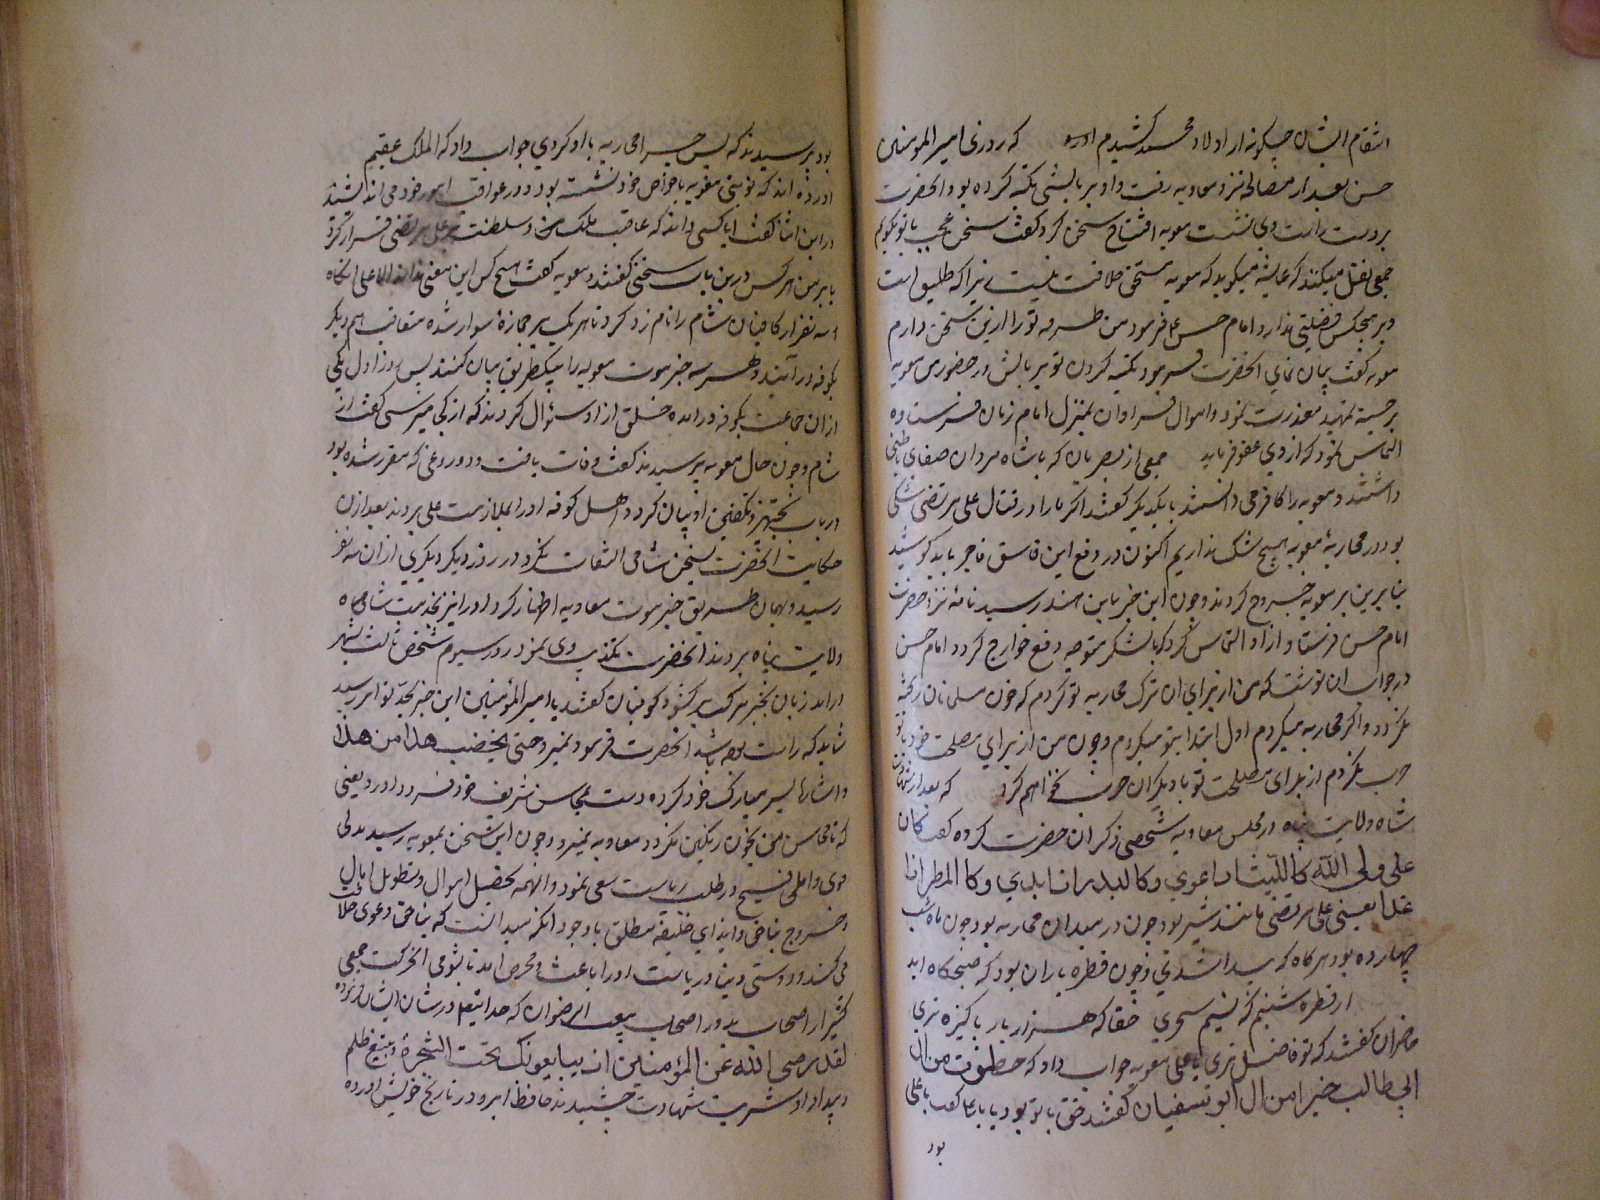 انتقام ایشان چگونه از اولاد محمد کشیدم آورده که روزی امیر المومنین
حسن بعد از مصالحه نزد معاویه رفت و او بر بالشی تکیه کرده بود آنحضرت
بر دست راست وی نشست معویه افتتاح سخن کرد گفت سخن عجب با تو بگویم
جمعی نقل میکنند که عایشه میگوید که معویه مستحق خلافت نیست زیرا که طلیق است
و بر هیچکس فضیلتی ندارد امام حسن ع فرمود من طرفه تر از این سخن دارم
معویه گفت بیان نمای آنحضرت فرمود تکیه کردن تو بر بالش در حضور من معویه
برجسته تمهید معذرت نمود و اموال فراوان بمنزل امام زمان فرستاده
التماس نمود که از وی عفو فرماید جمعی از بصریان که با شاه مردان صفای باطنی
داشتند و معویه را کافر می دانستند با یکدیگر گفتند اگر ما را در قتال علی مرتضی شکی
بود در محاربهٔ معویه هیچ شک نداریم اکنون در دفع این فاسق فاجر باید کوشید
بنا برین بر معویه خروج کردند و چون این خبر باین هند رسید نامه نزد حضرت
امام حسن فرستاد و ازو التماس کرد که با لشکر متوجه دفع خوارج گردد امام حسن
در جواب آن نوشت که من از برای آن ترک محاربه تو کردم که خون مسلمانان ریخته
نگردد و اگر محاربه میکردم اول ابتدا بتو میکردم و چون من از برای مصلحت خود با تو
حرب نکردم از برای مصلحت تو با دیگران حرب نخواهم کرد که بعد از شهادت
شاه ولایت پناه در مجلس معاویه شخصی ذکر آن حضرت کرده گفت کان
علی ولی الله کاللیث اذا عوی و کالبدر اذا بدی و کالمطر اذا
غدا یعنی علی مرتضی مانند شیر بود چون در میدان محاربه بود چون ماه شب
چهارده بود هر گاه که پیدا شدی و چون قطره باران بود که صبحگاه آید
از قطره شبنم که نسیم سحری حقا که هزار بار پاکیزه تری
حاضران گفتند که تو فاضل تری یا علی معویه جواب داد که خطوت من آل
ابی طالب خیرا من آل ابو سفیان گفتند حق با تو بود یا با علی گفت با علی
بود
بود پرسیدند که پس چرا محاربه با او کردی جواب داد که الملک عقیم
آورده اند که نوبتی معویه با خواص خود نشسته بود و در عواقب امور خود می اندیشید
در این اثنا گفت آیا کسی داند که عاقبت ملک من و سلطنت بر علی مرتضی قرار گیرد
یا بر من هر کس درین باب سخنی گفتند و معویه گفت هیچ کس این معنی نداند الا علی آنگاه
سه نفر از کافیان شام را نام زد کرد تا هر یک بر جمازهٔ سوار شده متعاقب هم دیگر
بکوفه درآیند و هر سه خبر موت معویه را بیکطریق بیان کنند پس روز اول یکی
از آن جماعت بکوفه درآمده خلق از او سئوال کردند که از کجا میرسی گفت از
شام و چون حال معویه پرسیدند گفت وفات یافت و دروغی که مقرر شده بود
در باب تجهیز و تکفین او بیان کرد و اهل کوفه او را بملازمت علی بردند بعد از آن
حکایت آنحضرت بسخن شامی التفات نکرد و در روز دیگر دیگری از آن سه نفر
رسید و بهمان طریق خبر موت معاویه اظهار کرد او را نیز بخدمت شاه
ولایت پناه بردند آنحضرت تکذیب وی نمود روز سیوم شخص ثالث بشهر
درآمد زبان بخبر مرگ بر گشود کوفیان گفتند یا امیر المؤمنین این خبر بحد تواتر رسید
شاید که راست بوده باشد آنحضرت فرمود نمیرد حتی یخضب هذا من هذا
و اشارة بسر مبارک خود کرده دست بمحاسن شریف خود فرود آورد یعنی
که تا محاسن من بخون رنگین نگردد معاویه نمیرد و چون این سخن بمعویه رسید بدلی
قوی و املی فسیح در طلب ریاست سعی نمود و الهمه تحصیل اموال و تطویل آمال
و خروج بناحق و ایذای خلیفه مطلق با وجود آنکه میدانست که بناحق دعوی خلافت
می کند و دوستی دنیا و ریاست او را باعث و محرض آمد تا بشومی آن حرکت جمعی
کثیر از اصحاب بدر و اصحاب بیعت الرضوان که خدایتعالی در شان ایشان فرموده
لقد رضی الله عن المؤمنین اذ یبایعونک تحت الشجرة بتیغ ظلم
و بیداد او شربت شهادت چشیدند حافظ ابرو در تاریخ خویش آورده